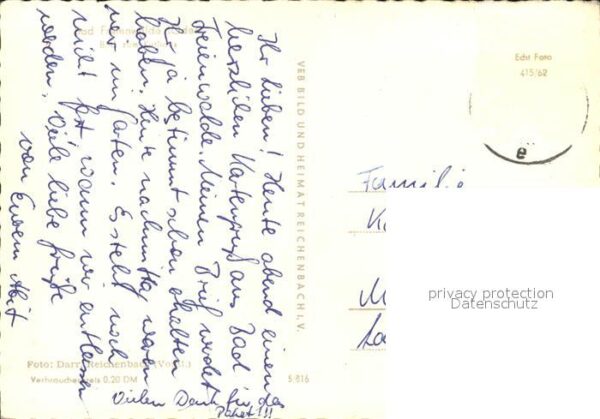 Bad Freienwalde
Ihr Lieben! Heute abend einen
herzlichen Kartengruß aus Bad
Freienwalde. Meinen Brief werdet
Ihr ja bestimmt schon erhalten
haben. Heute nachmittag waren
wir im Garten. Es steht noch
nicht fest, wann wir entlassen
werden. Viele liebe Grüße
von Eurem
Vielen Dank für das
Paket!!!
VEB BILD UND HEIMAT REICHENBACH I. V.
Foto: Darr, Reichenbach (Vogtl.)
Verbraucherpreis 0,20 DM
5/816
Echt Foto
415/62
Familie
privacy protection
Datenschutz